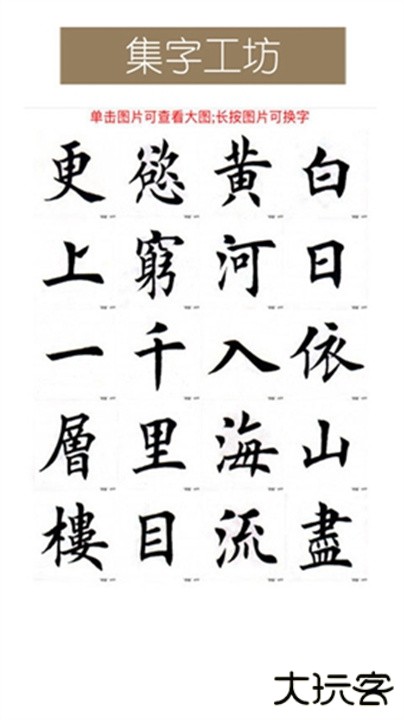 集字工坊
单击图片可查看大图;长按图片可换字
白日依山盡
黄河入海流
慾窮千里目
更上一層樓
大玩客